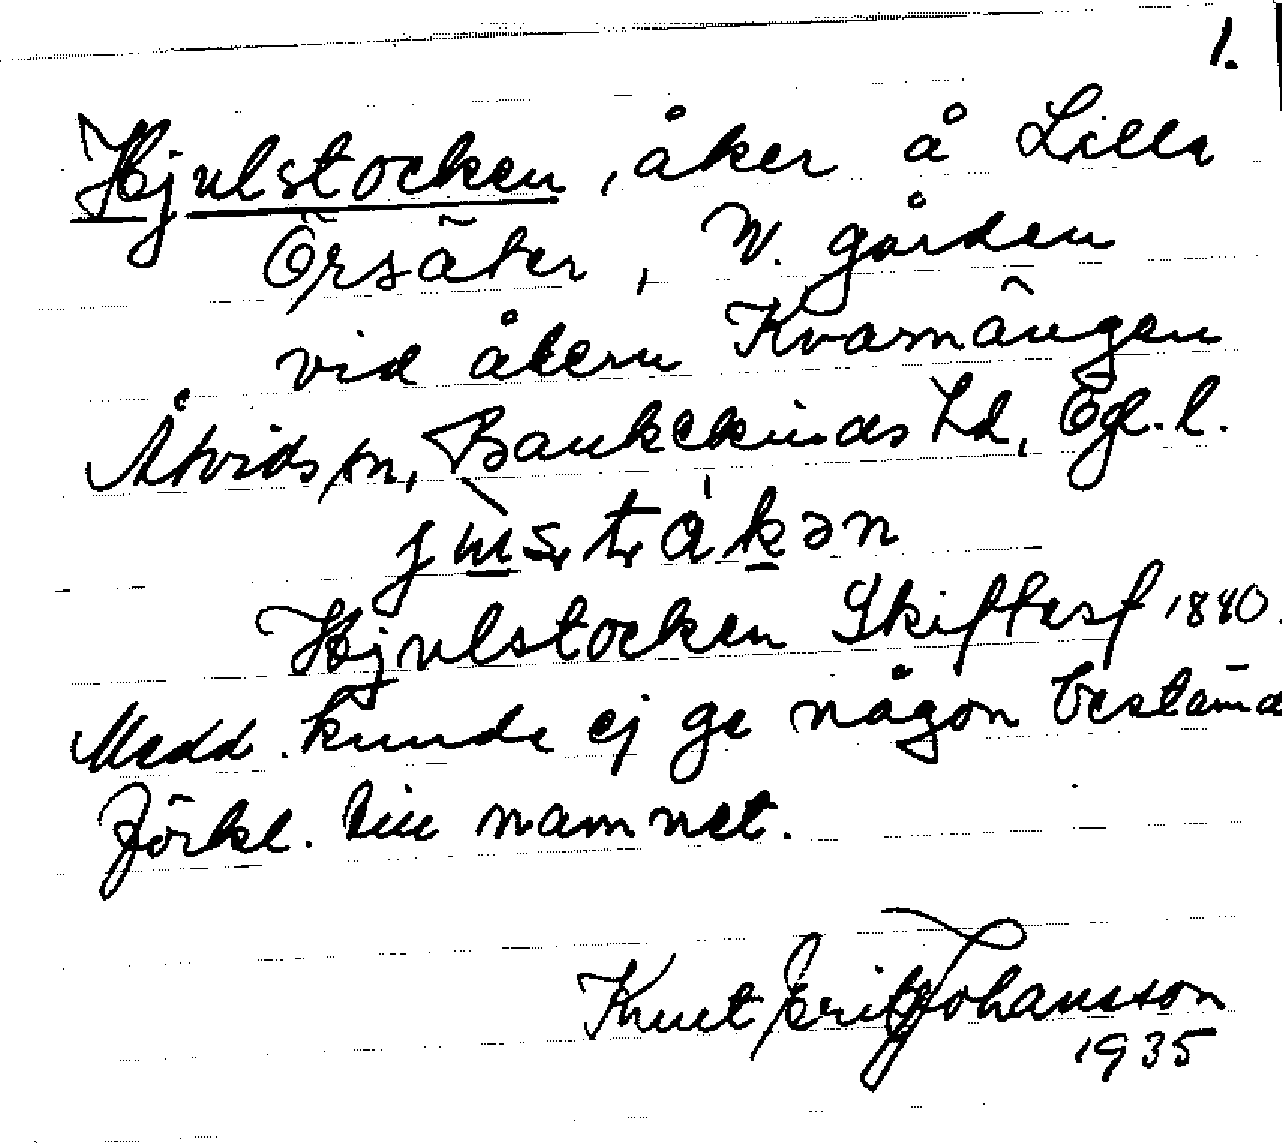 1.
Hjulstocken, åker å Lilla
Örsäter, V. gården
vid åkern Kvarnängen
Åtvids sn, Bankekinds hd, Ögl. l.
Hjulstocken Skiftesf 1880.
Medd. kunde ej ge någon bestämd
förkl. till namnet.
Knut Erik Johansson
1935